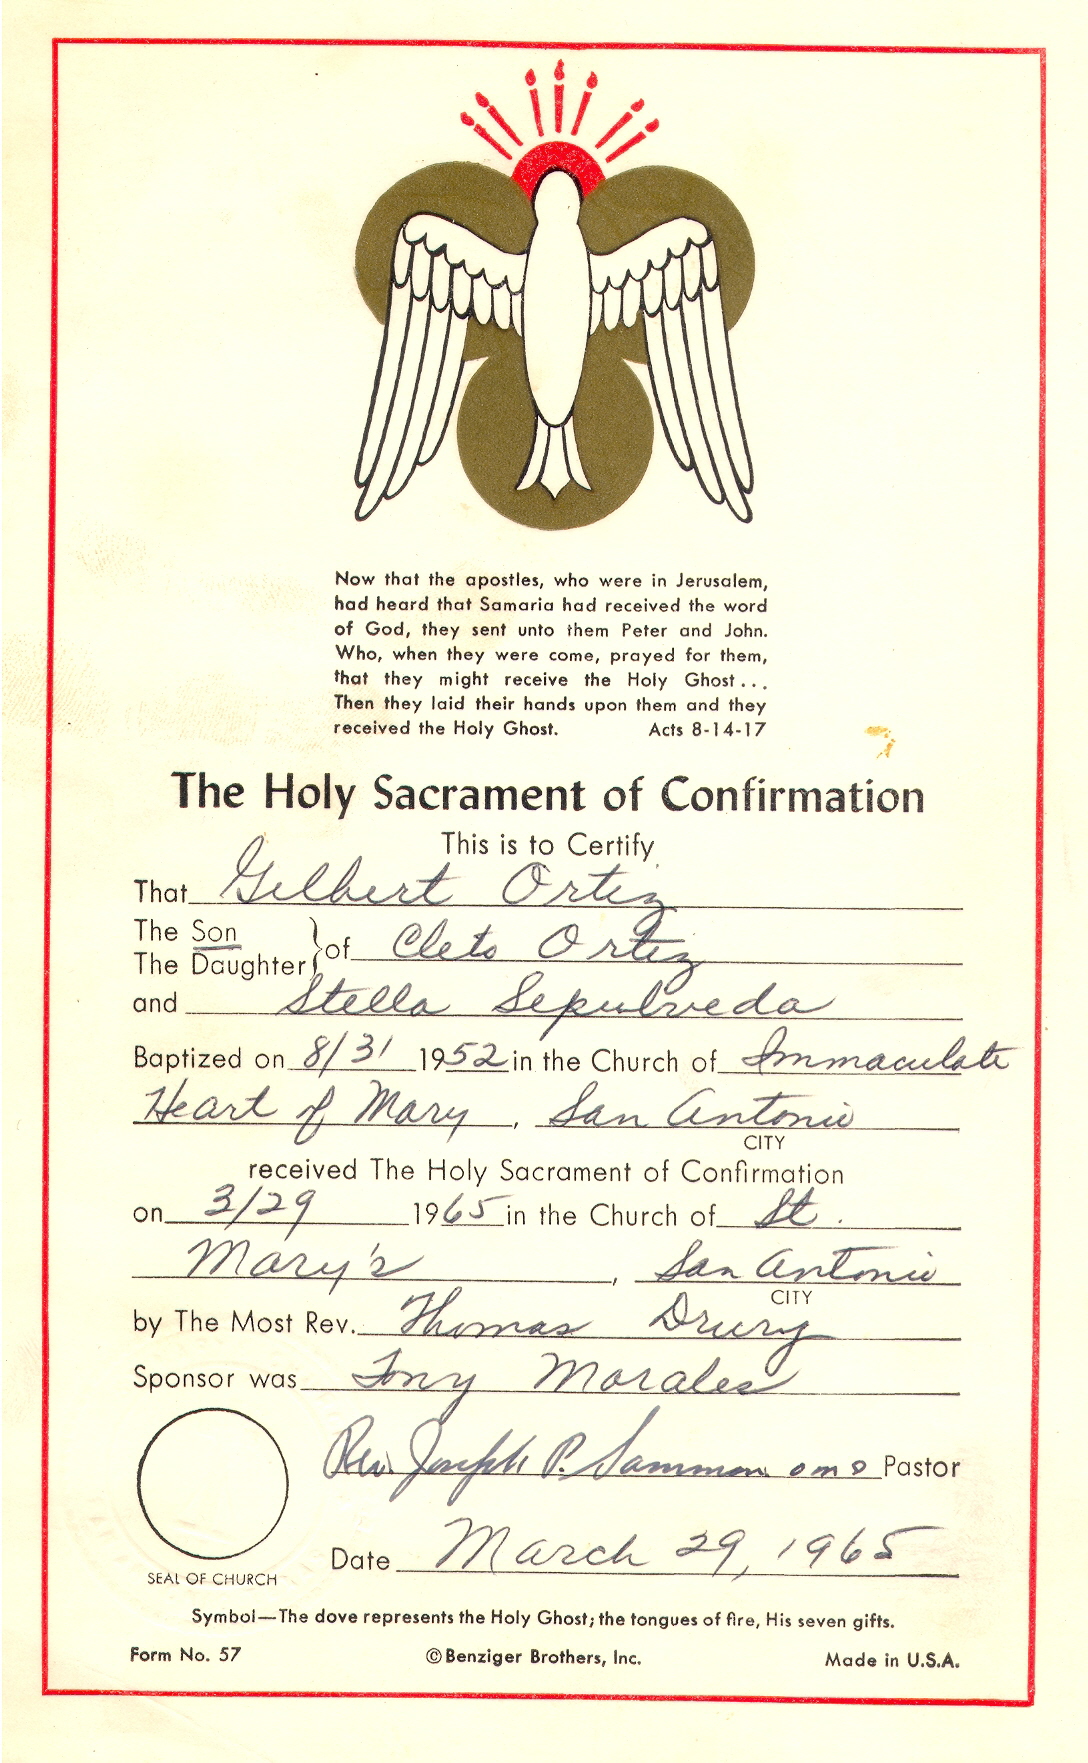 Now that the apostles, who were in Jerusalem,
had heard that Samaria had received the word
of God, they sent unto them Peter and John.
Who, when they were come, prayed for them,
that they might receive the Holy Ghost...
Then they laid their hands upon them and they
received the Holy Ghost. Acts 8-14-17
The Holy Sacrament of Confirmation
This is to Certify
That Gilbert Ortiz
The Son
The Daughter } of Cleto Ortiz
and Stella Sepulveda
Baptized on 8/31 1952 in the Church of Immaculate
Heart of Mary, San Antonio
CITY
received The Holy Sacrament of Confirmation
on 3/29 1965 in the Church of St.
Mary's, San Antonio
CITY
by The Most Rev. Thomas Drury
Sponsor was Tony Morales
Rev. Joseph P. Sammon omo Pastor
Date March 29, 1965
SEAL OF CHURCH
Symbol—The dove represents the Holy Ghost; the tongues of fire, His seven gifts.
Form No. 57 © Benziger Brothers, Inc. Made in U.S.A.